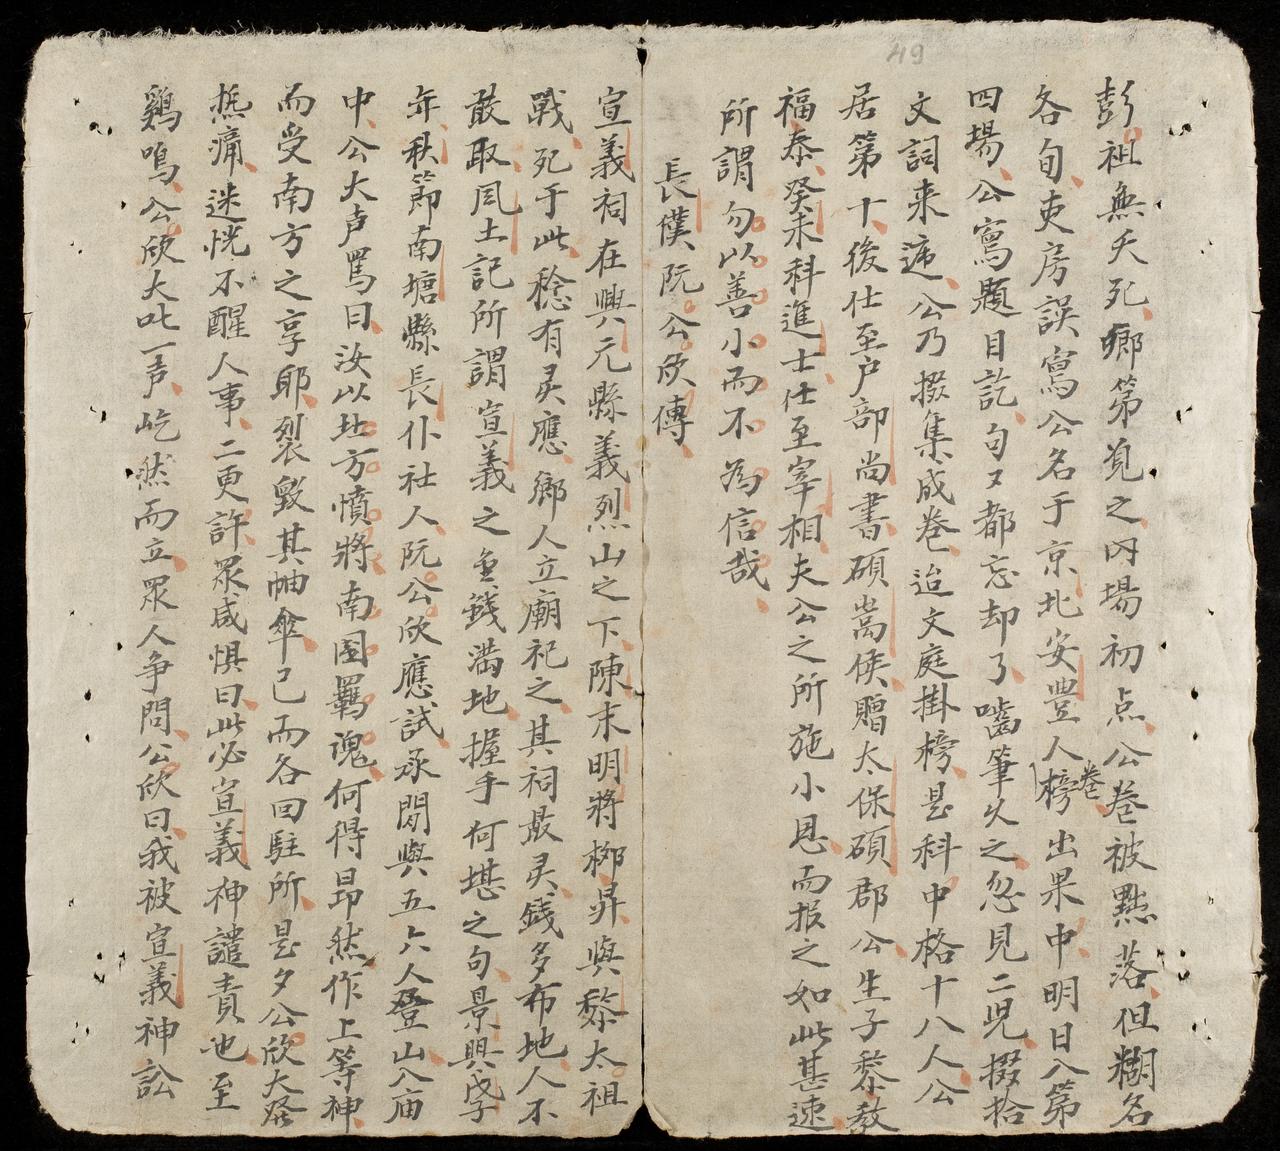 49
彭祖無夭死鄉第覓之内場初点公卷被點落但糊名
各旬吏房誤寫公名于京北安豊人榜出果中明日入第
卷
四場公寫題目訖句又都忘却了嚙筆久之忽見二児掇拾
文詞来遞公乃掇集成卷迨文庭掛榜是科中格十八人公
居第十後仕至户部尚書碩嵩侯贈太保碩郡公生子黎教
福泰癸未科進士仕至宰相夫公之所施小恩而报之如此甚速
所謂勿以善小而不為信哉
長僕阮公欣傳
宣義祠在興元縣義烈山之下陳末明將柳昇與黎太祖
戰死于此稔有灵應鄉人立廟祀之其祠最灵錢多布地人不
敢取風土記所謂宣義之金錢满地握手何堪之句景興戊子
年秋節南塘縣長仆社人阮公欣應試承間與五六人登山入庙
中公大声罵曰汝以北方憤將南国羈魂何得昂然作上等神
而受南方之享耶裂毀其岫傘已而各回駐所是夕公欣大發
热痛迷恍不醒人事二更許眾咸惧曰此必宣義神譴責也至
鷄鳴公欣大叱一声屹然而立眾人争問公欣曰我被宣義神訟